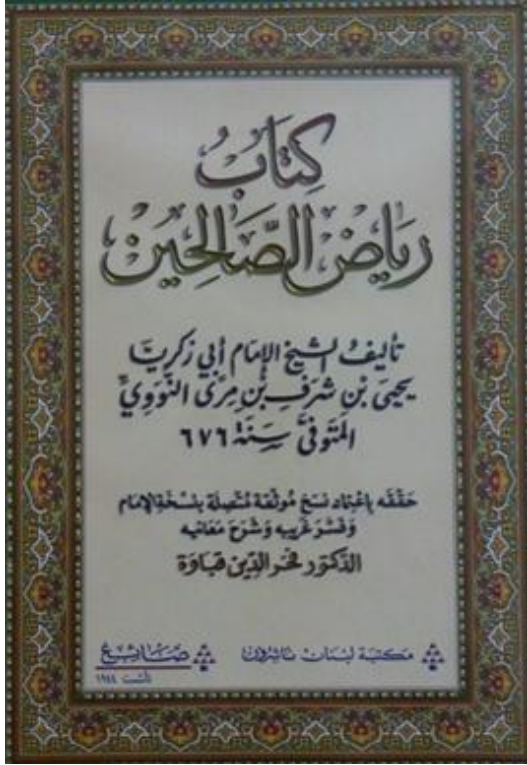 كِتَابُ
رِيَاضُ الصَّالِحِين
تأليفُ الشيخ الإمَام أبي زكريَّا
يحيى بن شَرَفِ بْن مِرَى النَّوَوِيِّ
المتَوفَّى سَنَة ٦٧٦
حَقَّقَه بِاعْتِمَاد نسَخ مُوثَّقَة مُتَّصِلَة بنُسْخَةِ الإمَام
وَفَسَّرَ غَريبَه وَشَرَحَ مَعَانيه
الدّكتور فخر الدّين قباوة
مكتبة لبنان ناشرون
صايغ
تأسّست ١٩٤٤